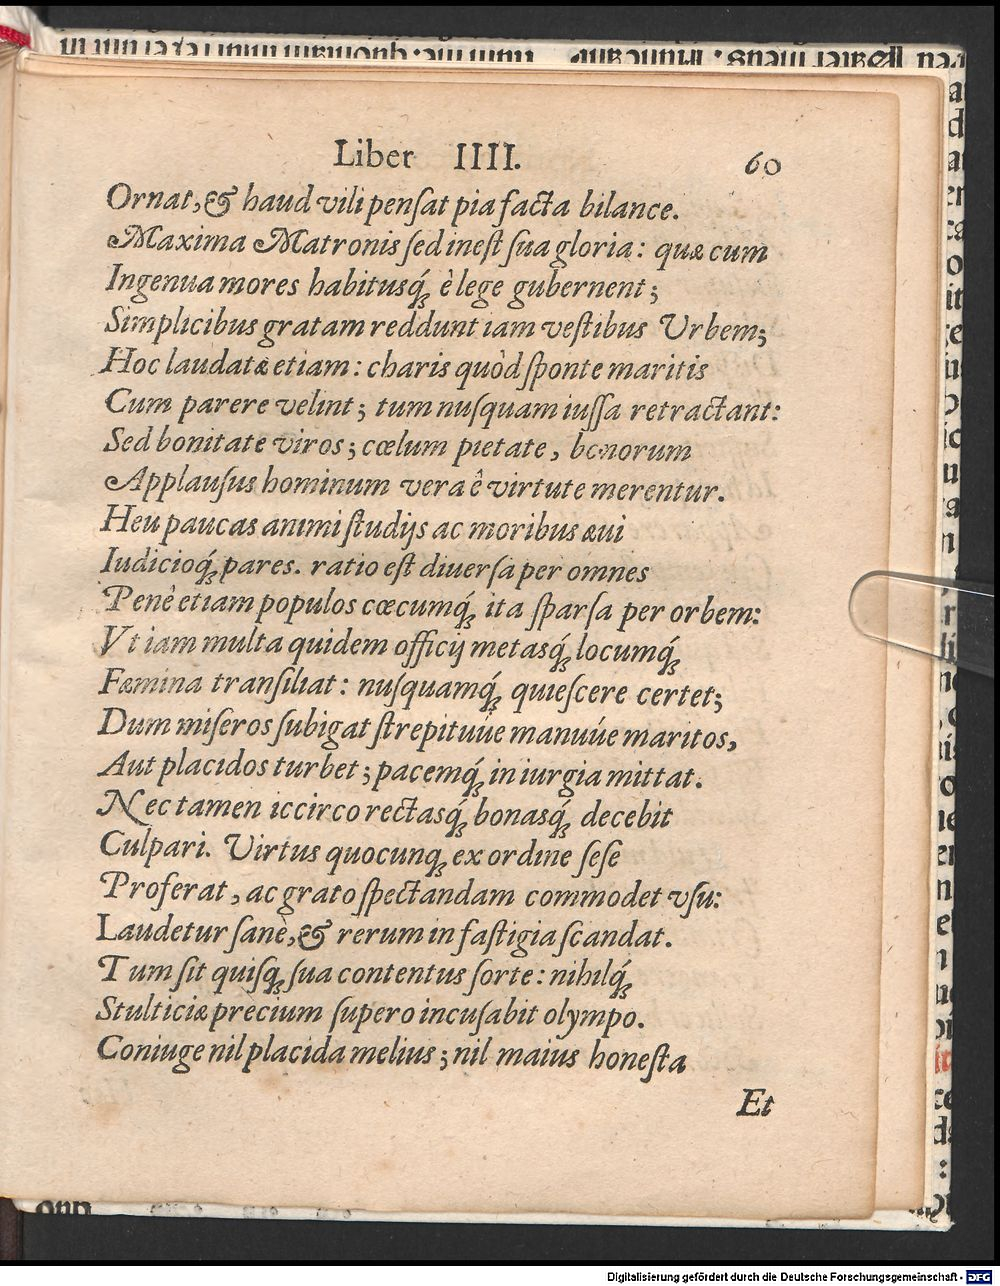 Liber IIII. 60
Ornat, & haud vili penſat pia facta bilance.
Maxima Matronis ſed ineſt ſua gloria: quæ cum
Ingenua mores habitusq́ꝫ è lege gubernent;
Simplicibus gratam reddunt iam veſtibus Urbem;
Hoc laudatæ etiam: charis quòd ſponte maritis
Cum parere velint; tum nuſquam iuſſa retractant:
Sed bonitate viros; cœlum pietate, bonorum
Applauſus hominum vera ê virtute merentur.
Heu paucas animi ſtudijs ac moribus æui
Iudicioq́ꝫ pares. ratio eſt diuerſa per omnes
Penè etiam populos cœcumq́ꝫ ita ſparſa per orbem:
Vt iam multa quidem officij metasq́ꝫ locumq́ꝫ
Fæmina tranſiliat: nuſquamq́ꝫ quieſcere certet;
Dum miſeros ſubigat ſtrepituúe manuúe maritos,
Aut placidos turbet; pacemq́ꝫ in iurgia mittat.
Nec tamen iccirco rectasq́ꝫ bonasq́ꝫ decebit
Culpari. Virtus quocunqꝫ ex ordine ſeſe
Proferat, ac grato ſpectandam commodet vſu:
Laudetur ſanè, & rerum in faſtigia ſcandat.
Tum ſit quiſqꝫ ſua contentus ſorte: nihilq́ꝫ
Stulticiæ precium ſupero incuſabit olympo.
Coniuge nil placida melius; nil maius honeſta
Et
Digitalisierung gefördert durch die Deutsche Forschungsgemeinschaft - DFG